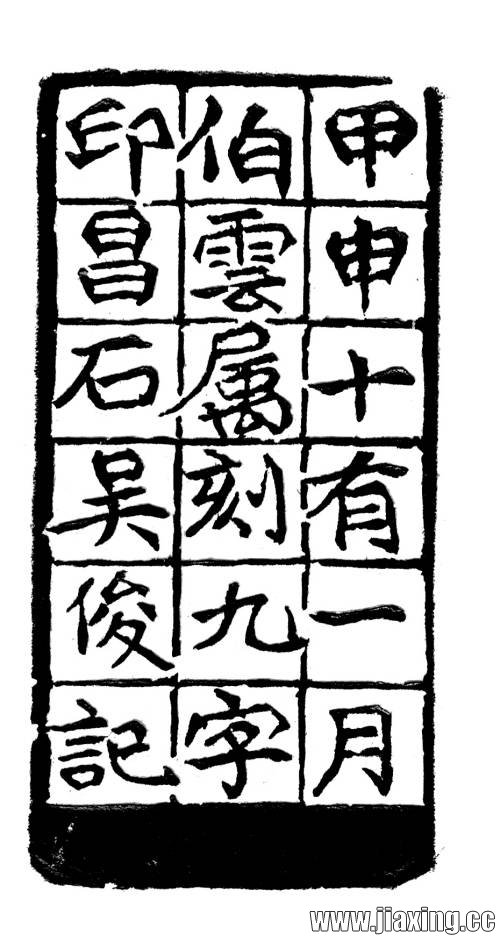 甲申十有一月
伯雲属刻九字
印昌石吴俊記
www.jiaxing.cc